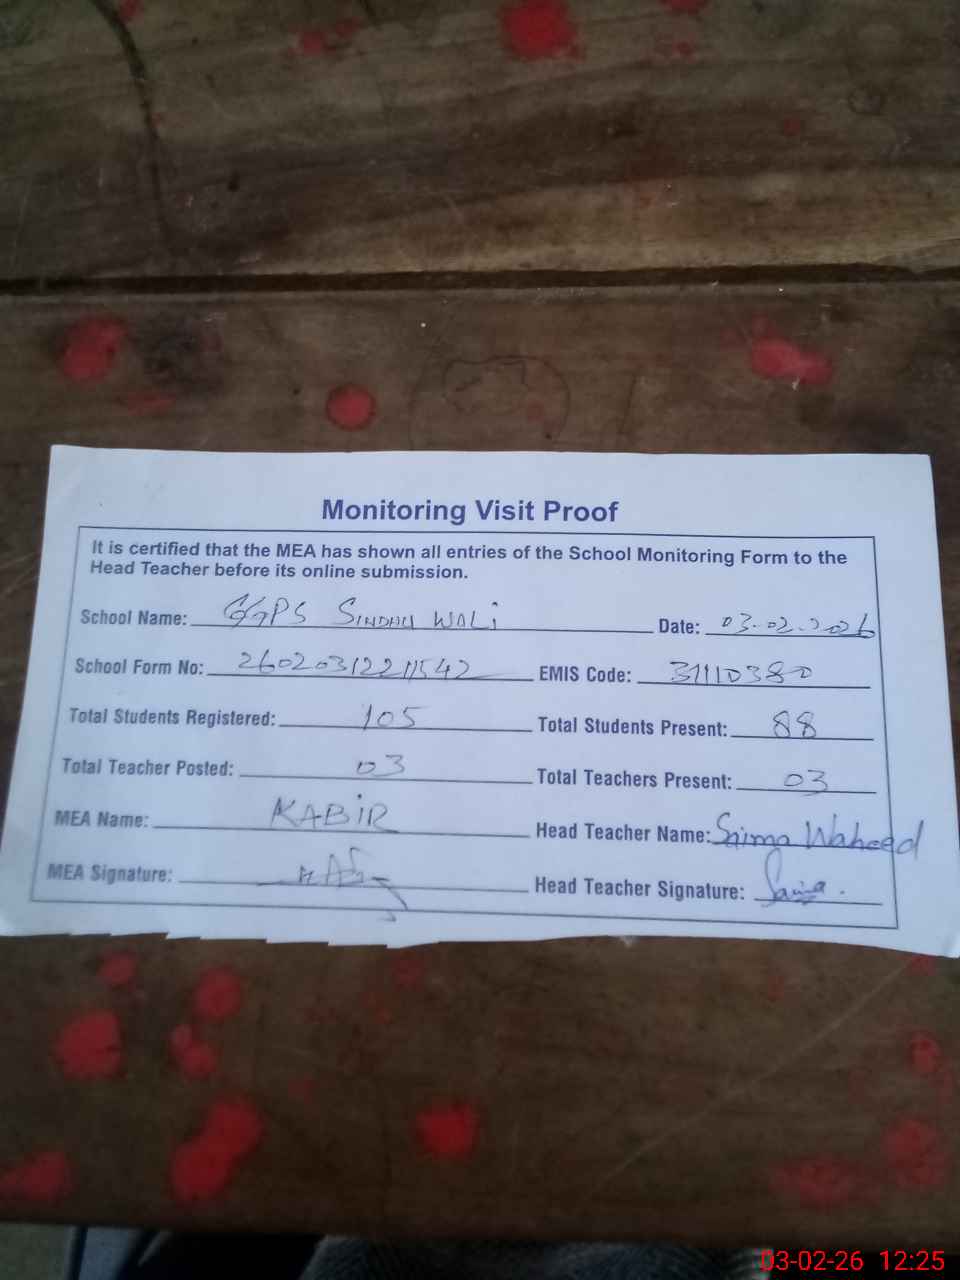 Monitoring Visit Proof
It is certified that the MEA has shown all entries of the School Monitoring Form to the
Head Teacher before its online submission.
School Name: GGPS SINDHU WALI Date: 03-02-2026
School Form No: 2602031221542 EMIS Code: 31110380
Total Students Registered: 105 Total Students Present: 88
Total Teacher Posted: 03 Total Teachers Present: 03
MEA Name: KABIR Head Teacher Name: Saima Waheed
MEA Signature: Head Teacher Signature: Saima.
03-02-26 12:25